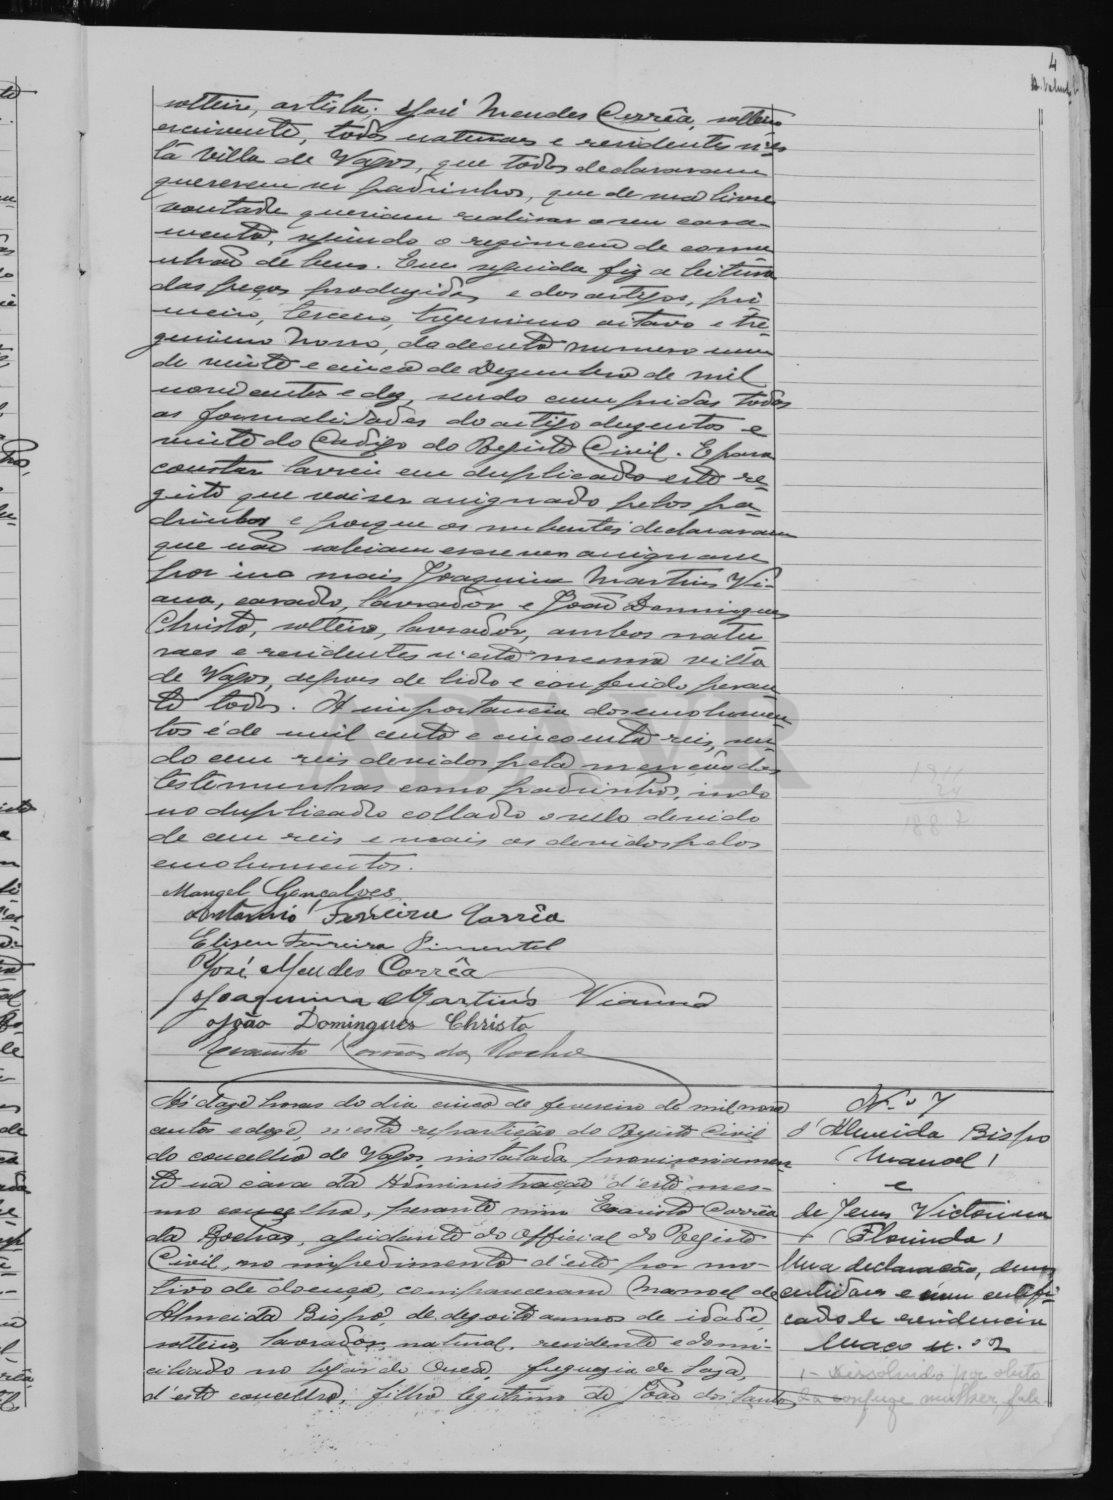 4
solteiro, artista; José Mendes Corrêa, solteiro
escrivente, todos naturaes e residentes n'es
ta Villa de Vagos, que todos declararam
quererem ser padrinhos, que de sua livre
vontade queriam realisar o seu casa-
mento, seguindo o regimem de comu
nhão de bens. Em seguida fiz a leitura
das peças produzidas e dos artigos, pri
meiro, terceiro, trigessimo oitavo e tri-
gessimo nono, do decreto numero um
de vinte e cinco de Dezembro de mil
novecentos e dez, sendo cumpridas todas
as formalidades do artigo duzentos e
vinte do Codigo do Registo Civil. E para
constar lavrei em duplicado este re-
gisto que vai ser assignado pelos pa-
drinhos e porque os nubentes declararam
que não sabiam escrever assignam
por isso mais Joaquim Martins Vi-
ana, casado, lavrador e João Domingues
Christo, solteiro, lavrador, ambos natu
raes e residentes n'esta mesma villa
de Vagos, depois de lido e conferido peran
te todos. A importancia dos emolumen
tos é de mil cento e cincoenta reis, sen
do cem reis devidos pela menção das
testemunhas como padrinhos, indo
no duplicado collado o sello devido
de cem reis e mais os devidos pelos
emolumentos.
Manoel Gonçalves
Antonio Ferreira Corrêa
Eliseu Ferreira Pimentel
José Mendes Corrêa
Joaquim Martins Vianna
João Domingues Christo
Evaristo Corrêa da Rocha
1911
24
1887
ADAVR
Ás doze horas do dia cinco de fevereiro de mil nove
centos e doze, n'esta repartição do Registo Civil
do concelho de Vagos, installada provisoriamen
te na casa da Administração d'este mes-
mo concelho, perante mim Evaristo Corrêa
da Rocha, ajudante do Official do Registo
Civil, no impedimento d'este por mo-
tivo de doença, compareceram Manoel de
Almeida Bispo, de dezoito annos de idade,
solteiro, lavrador, natural, residente e domi-
ciliado no logar de Ouca, freguezia de Soza,
d'este concelho, filho legitimo de João dos Santos
N.º 7
d'Almeida Bispo
(Manoel)
e
de Jesus Victorina
(Florinda)
Uma declaração, duas
certidões e um certifi-
cado de residencia
Maço n.º 2
1- Dissolvido por obito
da conjuge mulher, fale